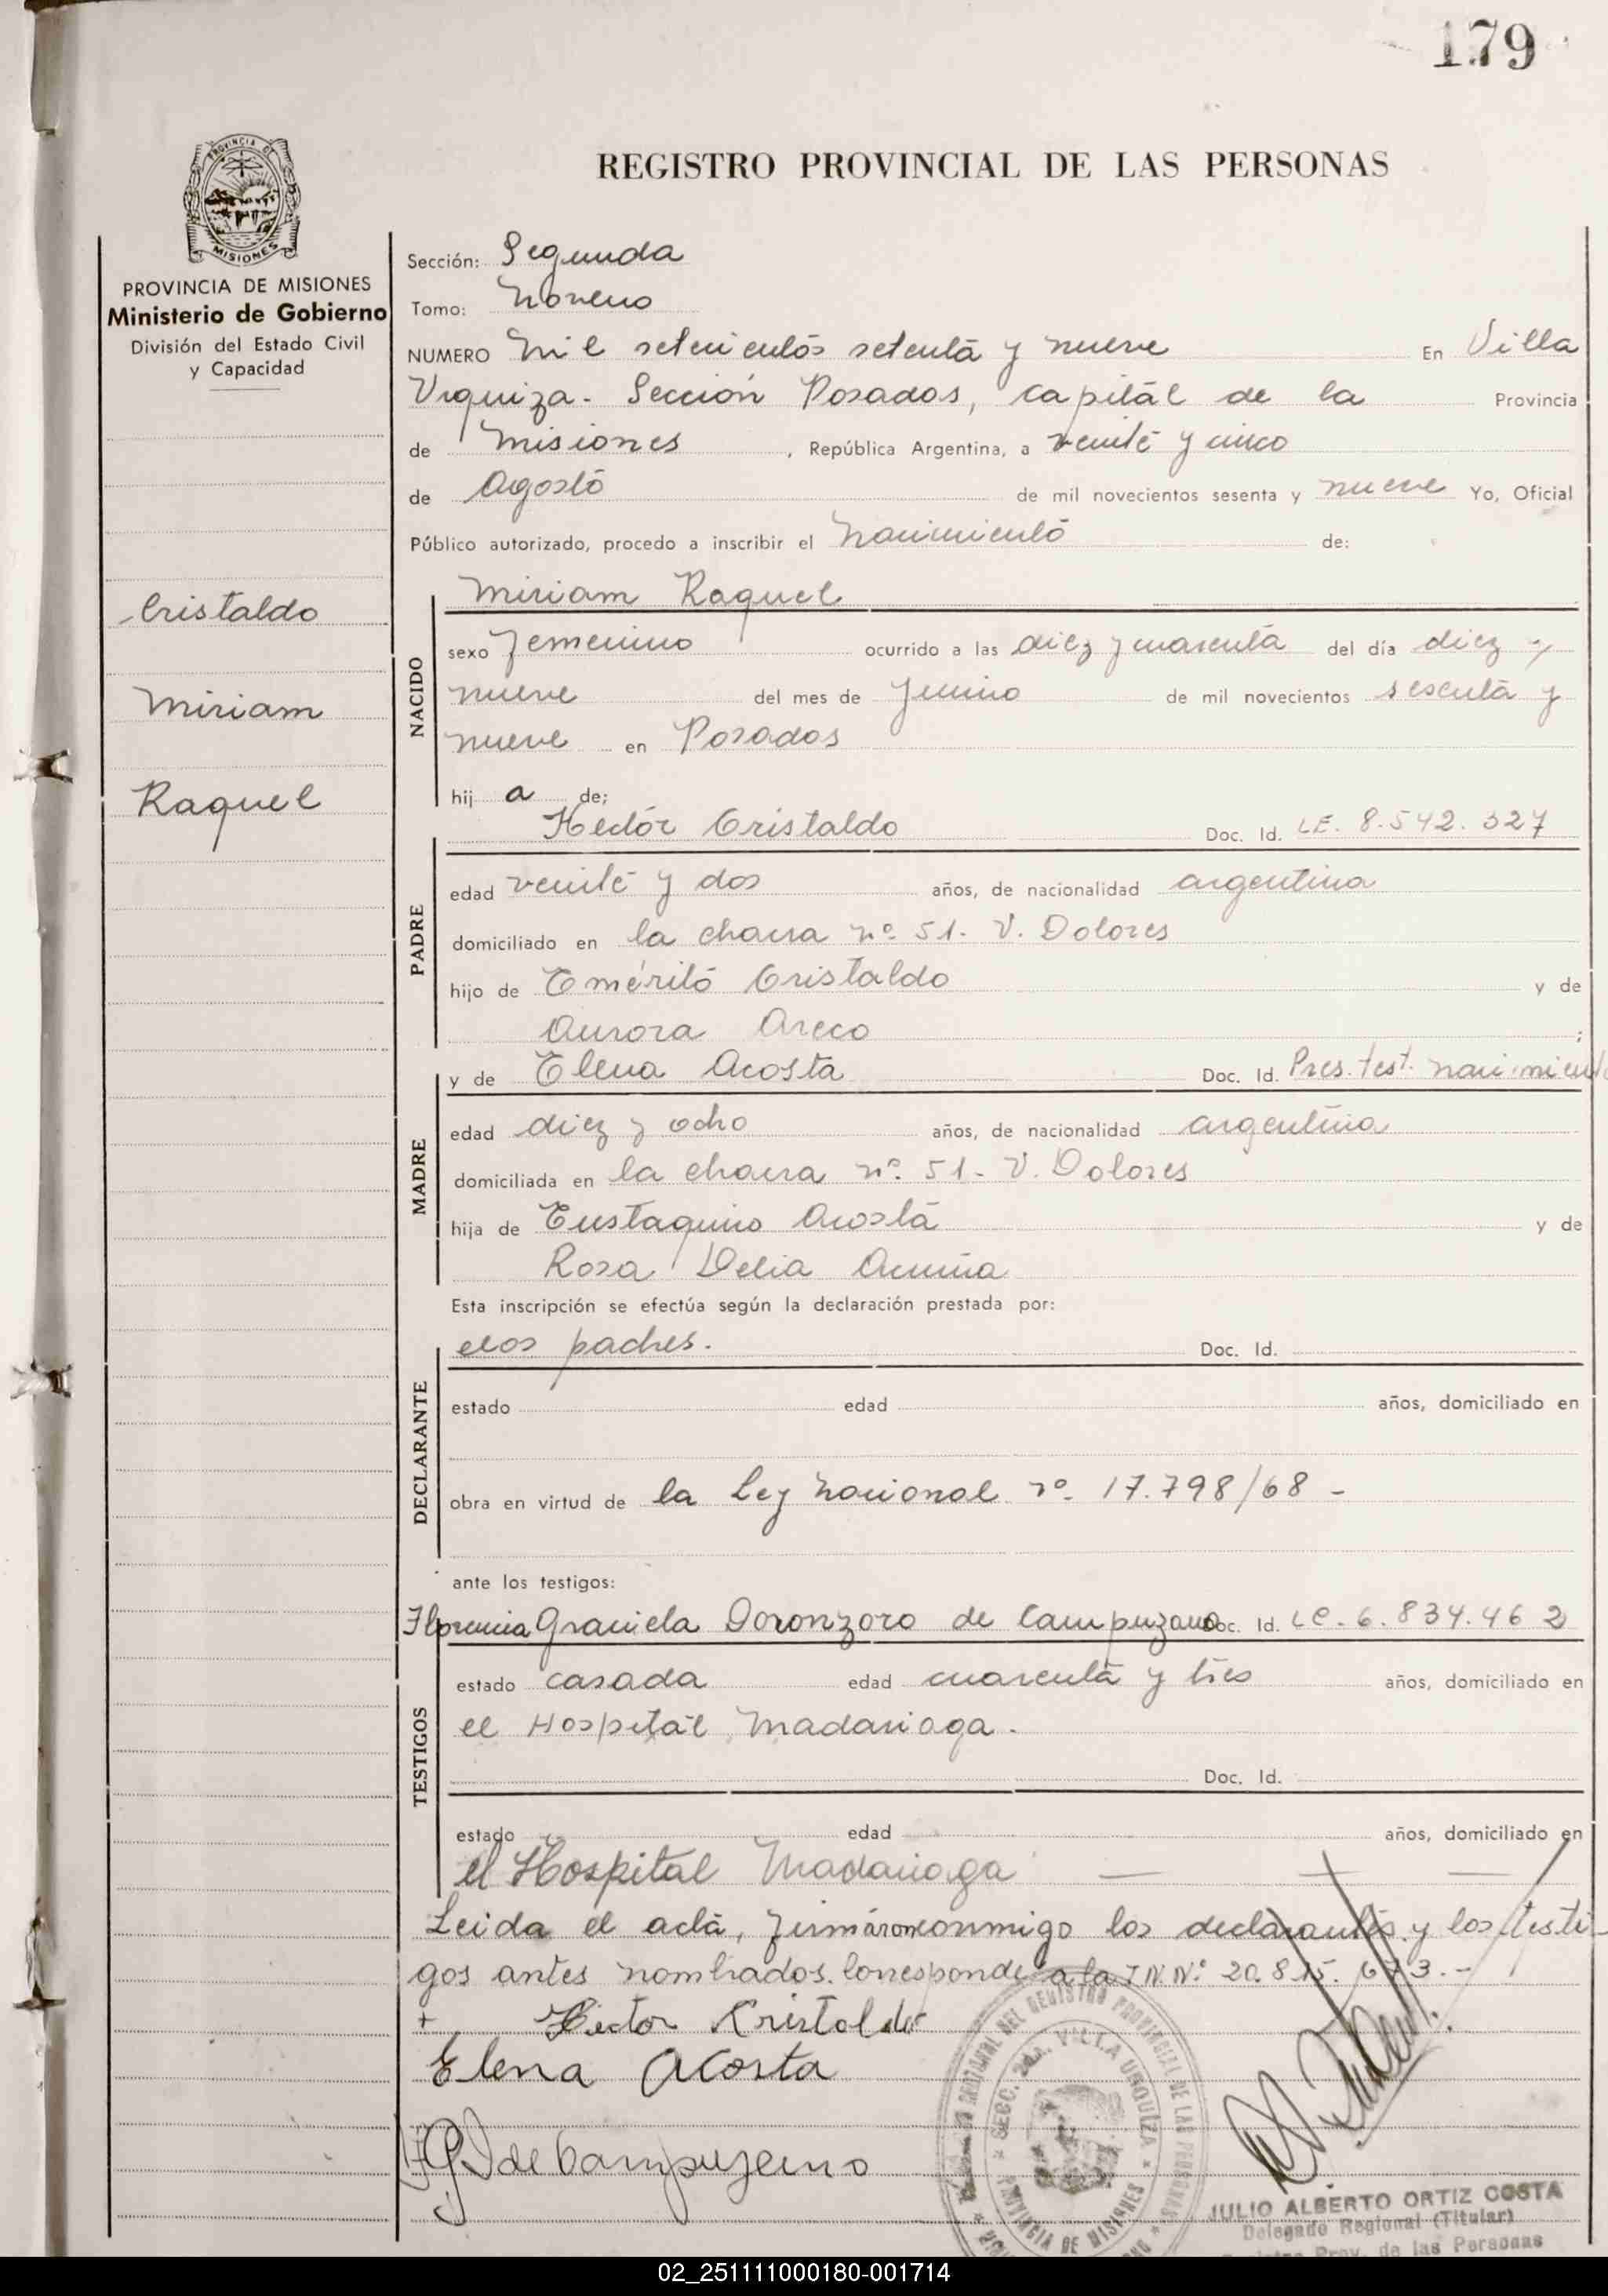 179
PROVINCIA DE
MISIONES
REGISTRO PROVINCIAL DE LAS PERSONAS
PROVINCIA DE MISIONES
Ministerio de Gobierno
División del Estado Civil
y Capacidad
Cristaldo
Miriam
Raquel
Sección: Segunda
Tomo: Noveno
NUMERO Mil setecientos setenta y nueve En Villa
Urquiza - Sección Posadas, capital de la Provincia
de Misiones, República Argentina, a veinte y cinco
de Agosto de mil novecientos sesenta y nueve Yo, Oficial
Público autorizado, procedo a inscribir el Nacimiento de:
NACIDO
Miriam Raquel
sexo femenino ocurrido a las diez y cuarenta del día diez y
nueve del mes de Junio de mil novecientos sesenta y
nueve en Posadas
hij a de;
PADRE
Hector Cristaldo Doc. Id. LE. 8.542.327
edad veinte y dos años, de nacionalidad argentina
domiciliado en la chacra nº 51. V. Dolores
hijo de Emérito Cristaldo y de
Aurora Areco ;
MADRE
y de Elena Acosta Doc. Id. Pres. test. nacimiento
edad diez y ocho años, de nacionalidad argentina
domiciliada en la chacra nº. 51 - V. Dolores
hija de Eustaquio Acosta y de
Rosa Delia Acuña
Esta inscripción se efectúa según la declaración prestada por:
DECLARANTE
padres. Doc. Id.
estado edad años, domiciliado en
obra en virtud de la Ley Nacional nº. 17.798/68 -
ante los testigos:
TESTIGOS
Florencia Graciela Doronzoro de Campuzano Doc. Id. LC. 6.834.462
estado casada edad cuarenta y tres años, domiciliado en
el Hospital Madariaga.
Doc. Id.
estado edad años, domiciliado en
el Hospital Madariaga
Leida el acta, firmáron conmigo los declarantes y los testi-
gos antes nombrados. Corresponde a la I.N.Nº 20.815.673.-
+ Hector Kristaldo
Elena Acosta
de Campuzano
SECC. 2da. VILLA URQUIZA
PROVINCIA DE MISIONES
JULIO ALBERTO ORTIZ COSTA
Delegado Regional (Titular)
Prov. de las Personas
02_251111000180-001714